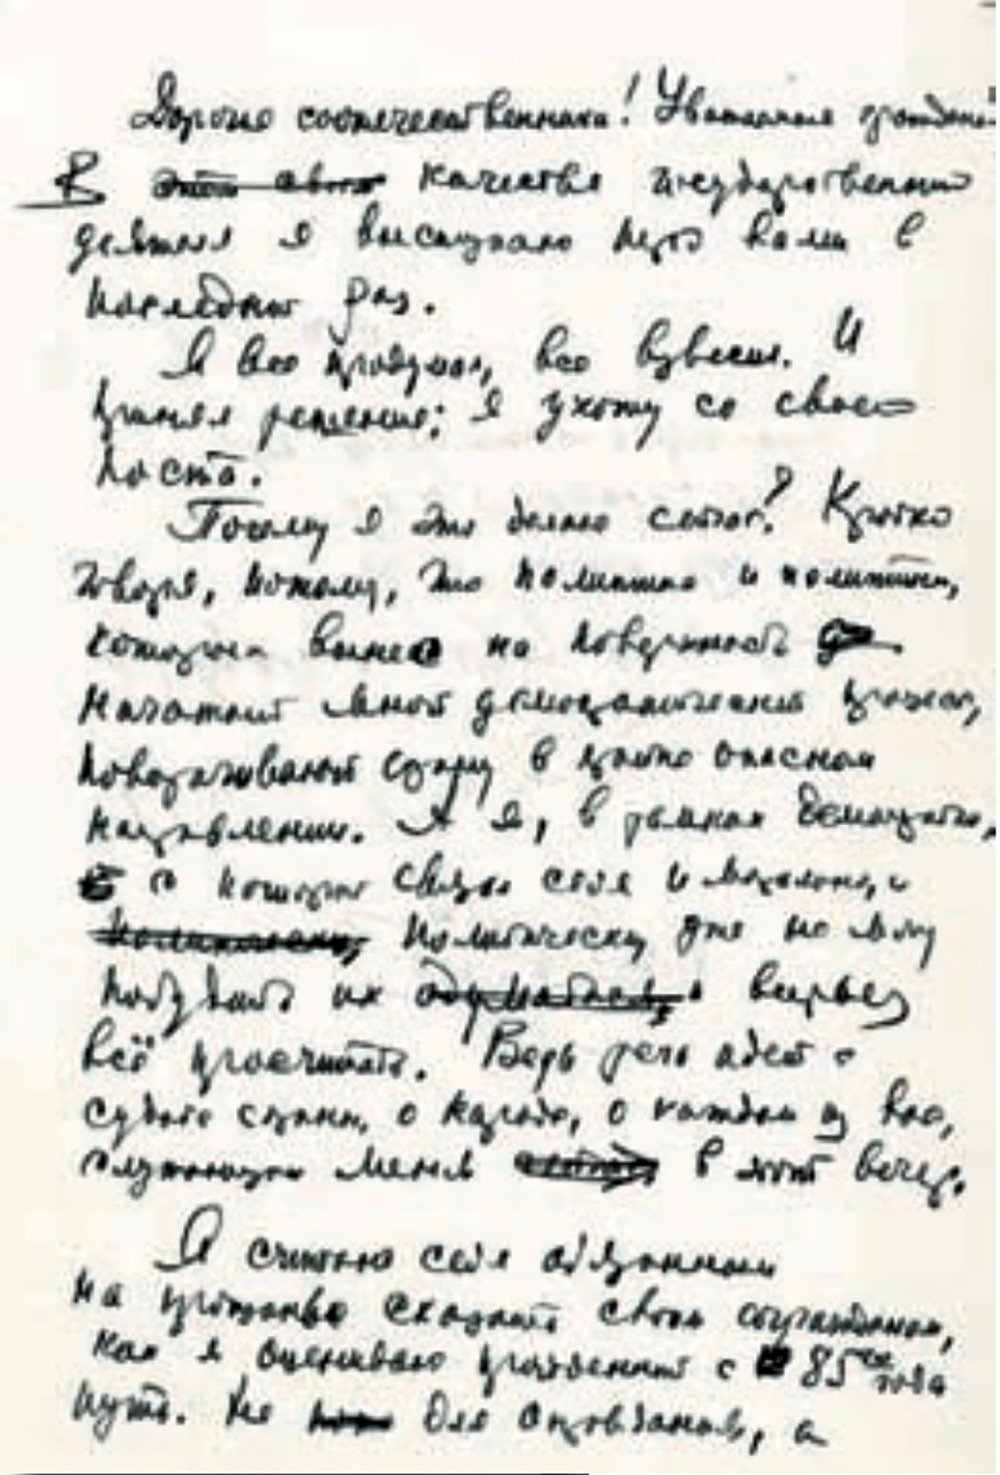 Дорогие соотечественники! Уважаемые граждане!
В качестве государственного
деятеля я выступаю перед вами в
последний раз.
Я все продумал, все взвесил. И
принял решение: я ухожу со своего
поста.
Почему я это делаю сейчас? Кратко
говоря, потому, что политика и политики,
которых вынес на поверхность
начатый мной демократический процесс,
поворачивают страну в крайне опасном
направлении. А я, в рамках демократии,
с которой связал себя и морально, и
политически, политически уже не могу
побудить их одуматься, и всерьез
всё просчитать. Ведь речь идет о
судьбе страны, о народе, о каждом из вас,
слушающих меня в этот вечер.
Я считаю себя обязанным
на прощанье сказать своим согражданам,
как я оцениваю пройденный с 85го года
путь. Не для оправдания, а